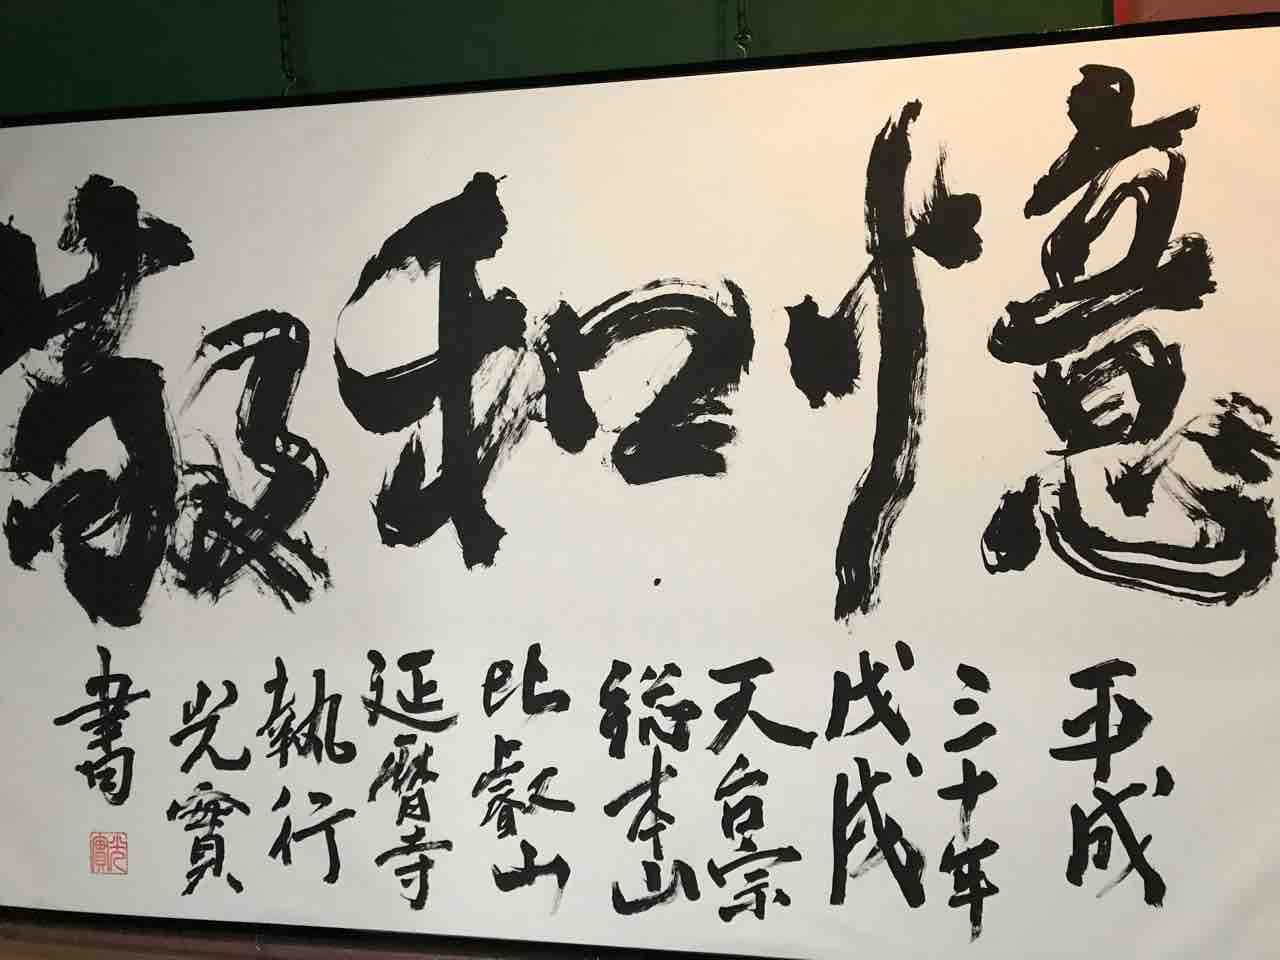 憶和敬
平成
三十年
戊戌
天台宗
総本山
比叡山
延暦寺
執行
光實
書
光實